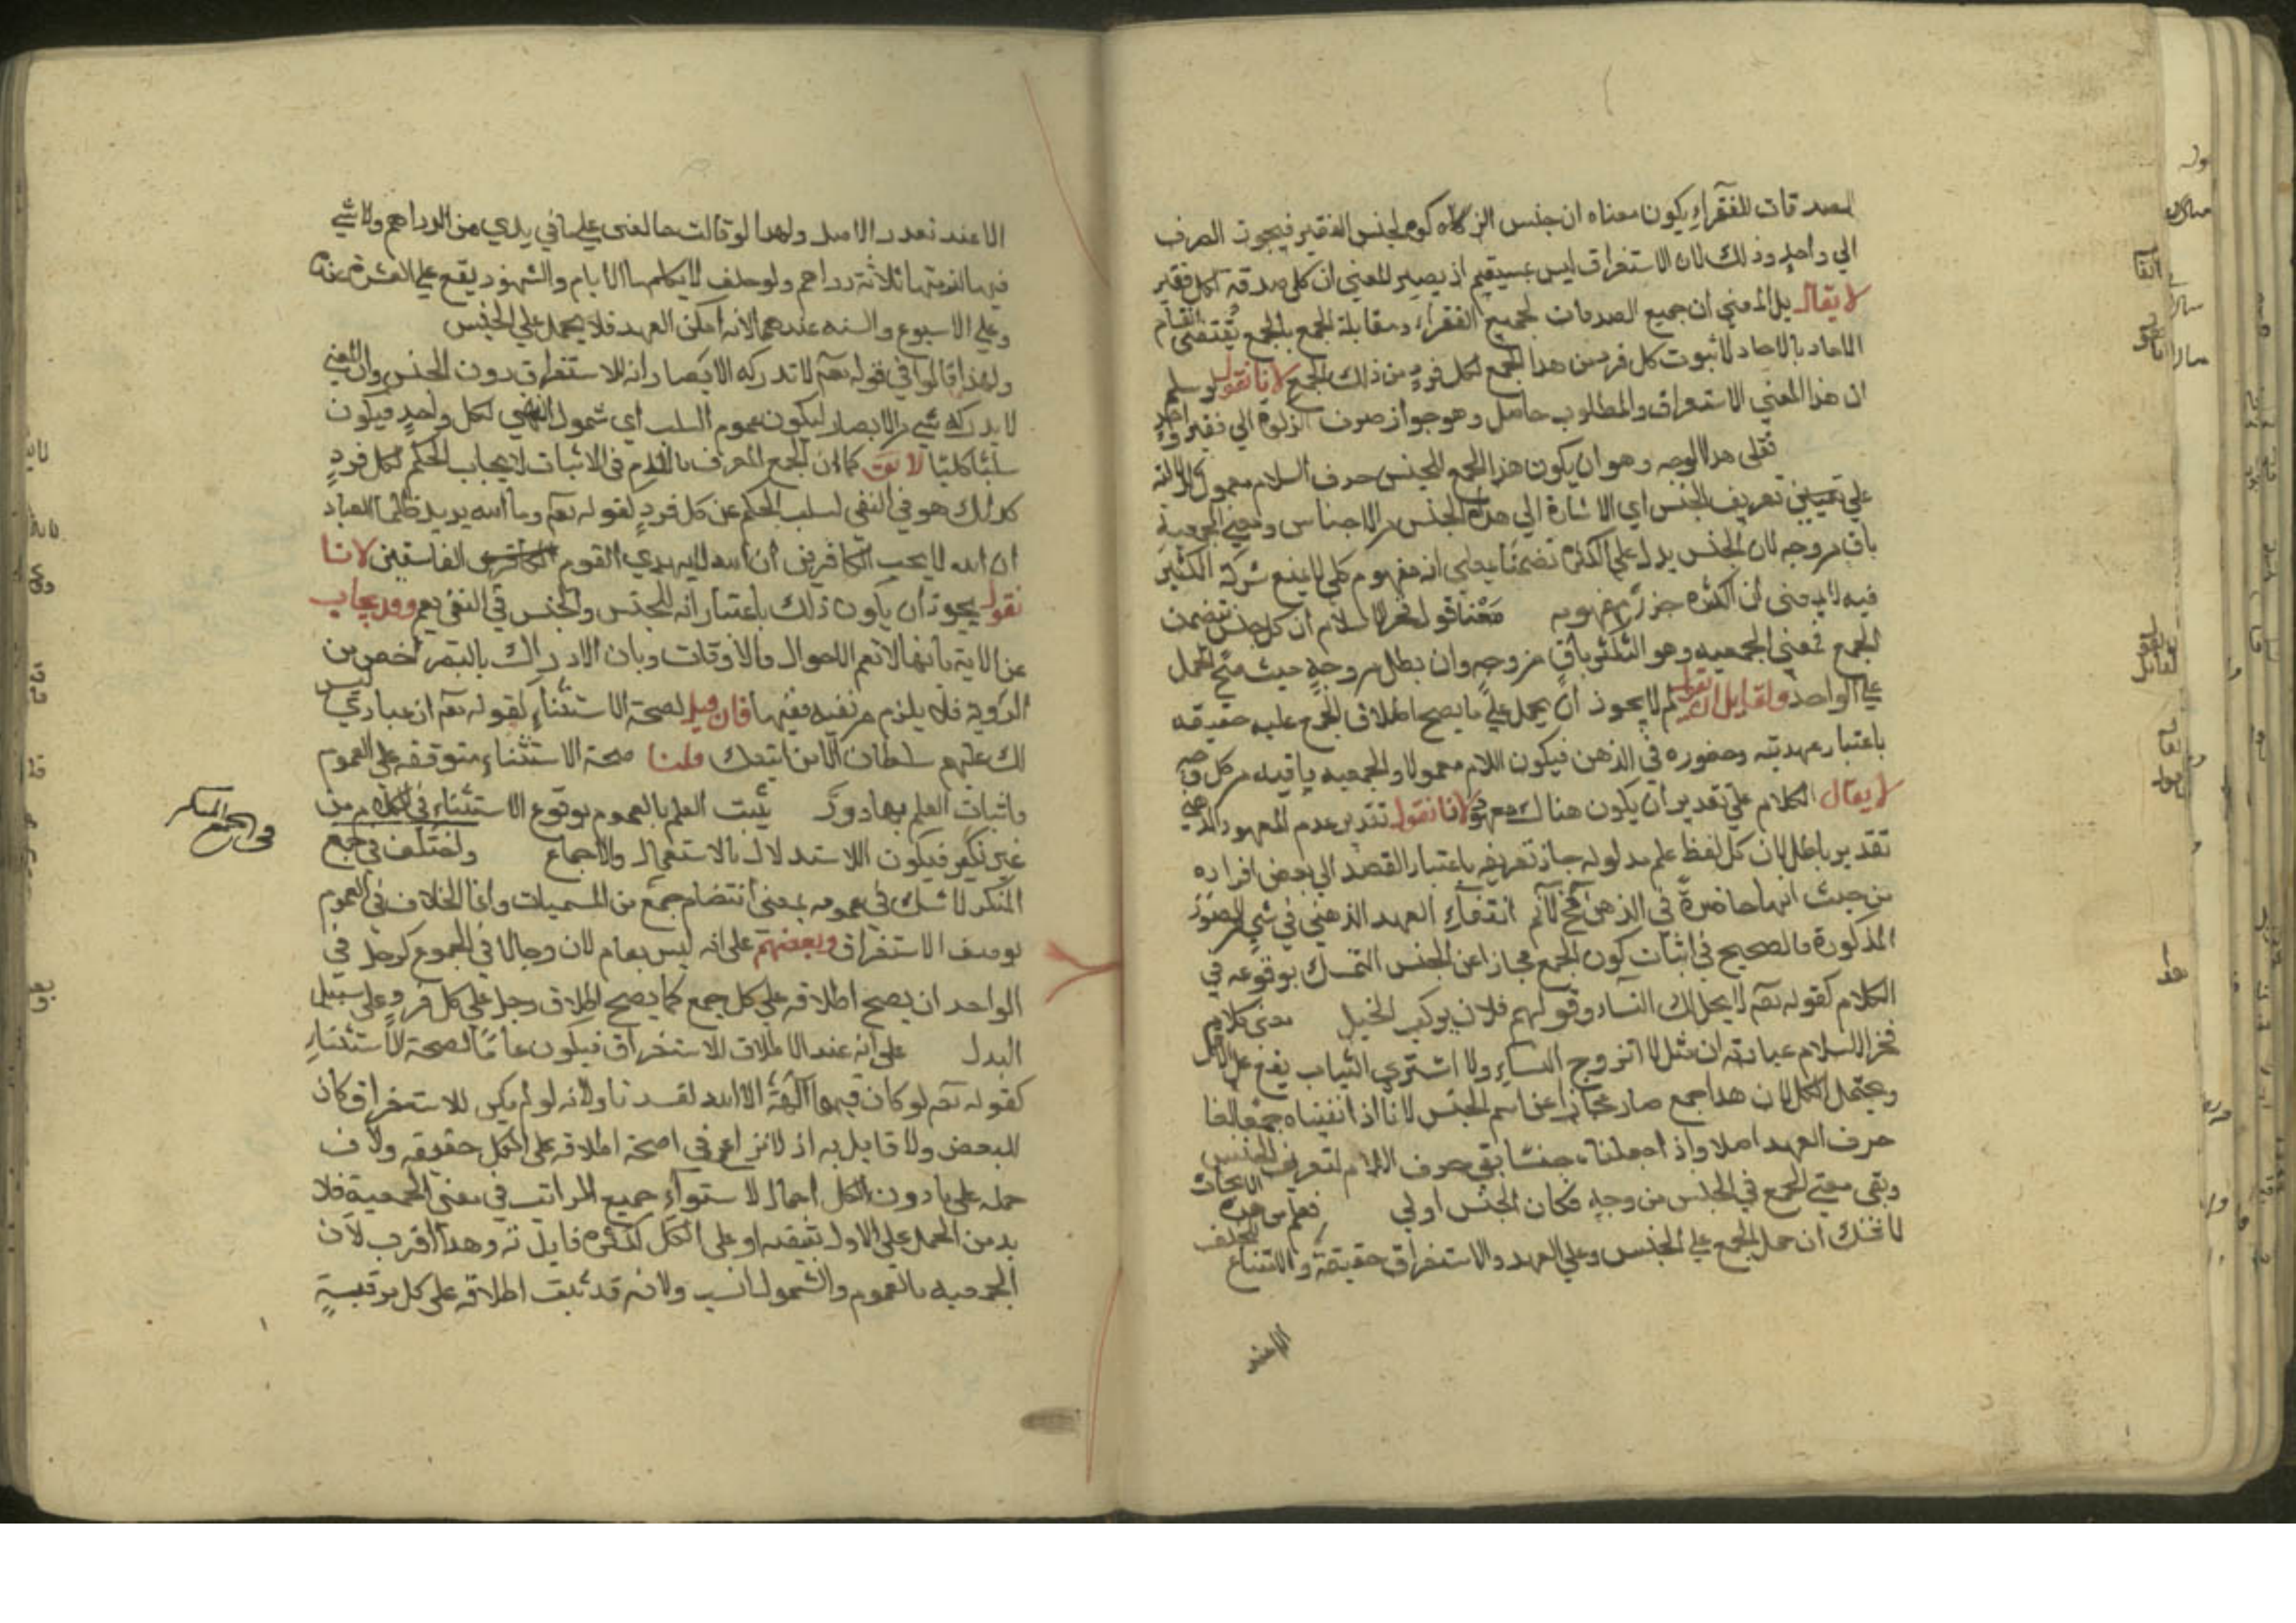 الصدقات للفقراء يكون معناه ان جنس الزكاة لجنس الفقير فيجوز الصرف
الي واحد وذلك لان الاستغراق ليس بمستقيم اذ يصير المعني ان كل صدقة لكل فقير
لا يقال بل المعني ان جميع الصدقات لجميع الفقراء ومقابلة الجمع بالجمع تقتضي انقسام
الاحاد بالاحاد لا ثبوت كل فرد من هذا الجمع لكل فرد من ذلك الجمع لانا نقول لو سلم
ان هذا المعني الاستغراق والمطلوب حاصل وهو جواز صرف الزكوة الي فقير واحد
فعلى هذا الوجه وهو ان يكون هذا الجمع للجنس حرف اللام معمول
علي تعريف الجنس اي الاشارة الي هذا الجنس من الاجناس ومعني الجمعية
باق من وجه لان الجنس يدل علي الكثرة تضمنا بمعني انه مفهوم كلي لا يمنع شركة الكثير
فيه لا بمعني ان الكثرة جزء مفهومه معنا قول فخر الاسلام ان كل جنس يتضمن
الجمع فمعني الجمعيه وهو التكثر باق من وجه وان بطل من وجه حيث صح الحمل
علي الواحد ولقايل ان يقول لم لا يجوز ان يحمل علي ما يصح اطلاق الجمع عليه حقيقه
باعتبار عهديته وحضوره في الذهن فيكون اللام معمولا والجمعيه باقيه من كل وجه
لا يقال الكلام علي تقدير ان يكون هناك معهود لانا نقول تقدير عدم المعهود الذهني
تقدير باطل لان كل لفظ علم مدلوله جاز تعريفه باعتبار القصد الي بعض افراده
من حيث انها حاضرة في الذهن انتفاء العهد الذهني في شي من الصور
المذكورة فالصحيح في اثبات كون الجمع مجازا عن الجنس التمسك بوقوعه في
الكلام كقوله تعم لا يحل لك النساء وقولهم فلان يركب الخيل كلام
فخر الاسلام عبارته ان مثل لا اتزوج النساء ولا اشتري الثياب يقع علي الاقل
ويحتمل الكل لان هذا جمع صار مجازا عن اسم الجنس لانا اذا ابقيناه جمعا لغا
حرف العهد اصلا واذا جعلناه جنسا بقي حرف اللام لتعريف الجنس
وبقي معني الجمع في الجنس من وجه فكان الجنس اولي فعلم من هذه الابحاث
ان حمل الجمع علي الجنس وعلي العهد والاستغراق حقيقة
الا عند
الا عند تعذر الاصل ولهذا لو قالت خالعني علي ما في يدي من الدراهم ولا شي
فيها لزمتها ثلاثة دراهم ولو حلف لا يكلمها الايام والشهور يقع علي العشرة عنده
وعلي الاسبوع والسنه عندهما لانه امكن العهد فلا يحمل علي الجنس
ولهذا قالوا في قوله تعم لا تدركه الابصار انه للاستغراق دون الجنس وان المعني
لا يدركه شي من الابصار ليكون عموم السلب اي شمول النفي لكل واحد فيكون
سلبا كليا لا يق كما ان الجمع المعرف باللام في الاثبات لايجاب الحكم لكل فرد
كذلك هو في النفي لسلب الحكم عن كل فرد لقوله تعم وما الله يريد ظلما للعباد
ان الله لا يحب الكافرين ان الله لا يهدي القوم الفاسقين لانا
نقول يجوز ان يكون ذلك باعتبار انه للجنس والجنس في النفي يعم وقد يجاب
عن الاية بانها لا تعم الاحوال والاوقات وبان الادراك بالبصر اخص من
الروية فلا يلزم من نفيه نفيها فان قيل لصحة الاستثناء لقوله تعم ان عبادي ليس
لك عليهم سلطان الا من اتبعك قلنا صحة الاستثناء متوقفه علي العموم
فاثبات العلم بها دور يثبت العلم بالعموم بوقوع الاستثناء في الكلام من
غير نكير فيكون الاستدلال بالاستعمال والاجماع واختلف في جمع
في الجمع المنكر
المنكر لا شك في عمومه بمعني انتظام جمع من المسميات وانما الخلاف في العموم
بوصف الاستغراق وبعضهم على انه ليس بعام لان رجالا في الجموع كرجل في
الواحد ان يصح اطلاقه علي كل جمع كما يصح اطلاق رجل علي كل فرد علي سبيل
البدل علي انه عند الاطلاق للاستغراق فيكون عاما لصحة الاستثناء
كقوله تعم لو كان فيهما آلهة الا الله لفسدتا ولانه لو لم يكن للاستغراق كان
للبعض ولا قايل به اذ لا نزاع في صحة اطلاقه على الكل حقيقه ولان
حمله علي ما دون الكل اجمال لاستواء جميع المراتب في معني الجمعية فلا
بد من الحمل علي الاول تيقنه او علي الكل لكثرة فايدته وهذا اقرب لان
الجمعيه بالعموم والشمول انسب ولانه قد ثبت اطلاقه علي كل مرتبة